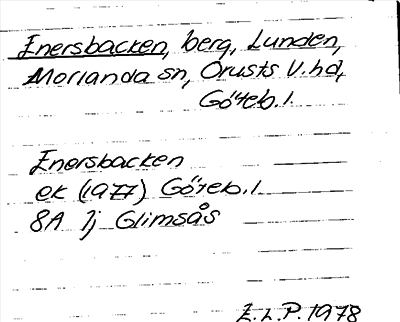 Enersbacken, berg, Lunden,
Morlanda sn, Orusts V. hd,
Göteb. l.
Enersbacken
ek (1977) Göteb. l
8A 1j Glimsås
E.L.P. 1978